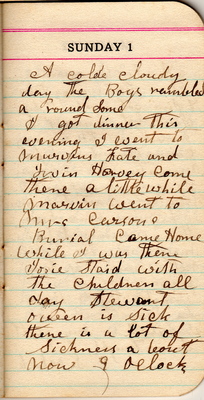 SUNDAY 1
A colde cloudy
day the Boys rambled
a round Some
I got dinner This
evening I went to
Marvins Kate and
Irwin Harvey come
there a little while
Marvin went to
Mrs Carsons
Burial Came Home
while I was There
Josie Staid with
the children all
day Stewart
owen is Sick
there is a lot of
Sickness a bout
now 9 Oclock